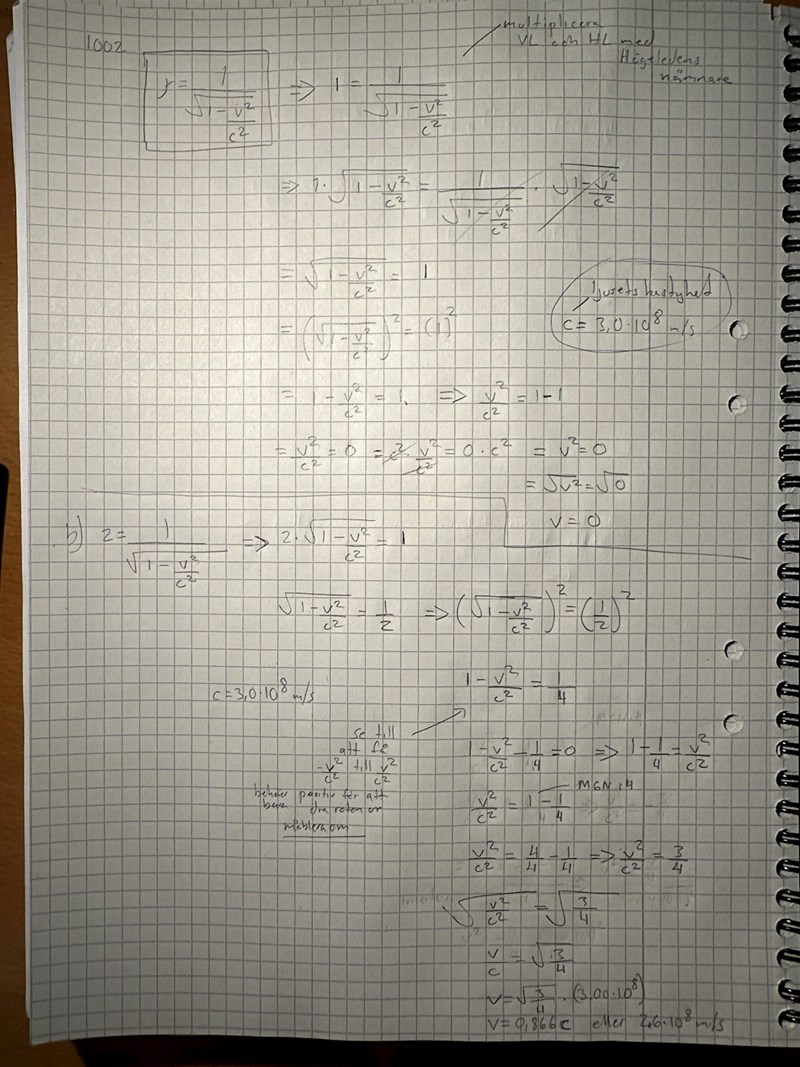 1002
multiplicera
VL och HL med
Högeledens
nämnare
γ = 1/√(1 - v²/c²) ⇒ 1 = 1/√(1 - v²/c²)
⇒ 1 · √(1 - v²/c²) = 1/√(1 - v²/c²) · √(1 - v²/c²)
= √(1 - v²/c²) = 1
ljusets hastighet
c = 3,0·10⁸ m/s
= (√(1 - v²/c²))² = (1)²
= 1 - v²/c² = 1. ⇒ v²/c² = 1-1
= v²/c² = 0 = c² · v²/c² = 0 · c² = v² = 0
= √v² = √0
v = 0
b) 2 = 1/√(1 - v²/c²) ⇒ 2 · √(1 - v²/c²) = 1
√(1 - v²/c²) = 1/2 ⇒ (√(1 - v²/c²))² = (1/2)²
1 - v²/c² = 1/4
c = 3,0·10⁸ m/s
se till
att få
-v²/c² till v²/c²
behöver positiv för att
bara dra roten ur
möblera om
1 - v²/c² - 1/4 = 0 ⇒ 1 - 1/4 = v²/c²
MGN: 4
v²/c² = 1 - 1/4
v²/c² = 4/4 - 1/4 ⇒ v²/c² = 3/4
√(v²/c²) = √(3/4)
v/c = √(3/4)
v = √(3/4) · (3,00·10⁸)
v = 0,866c eller 2,6·10⁸ m/s